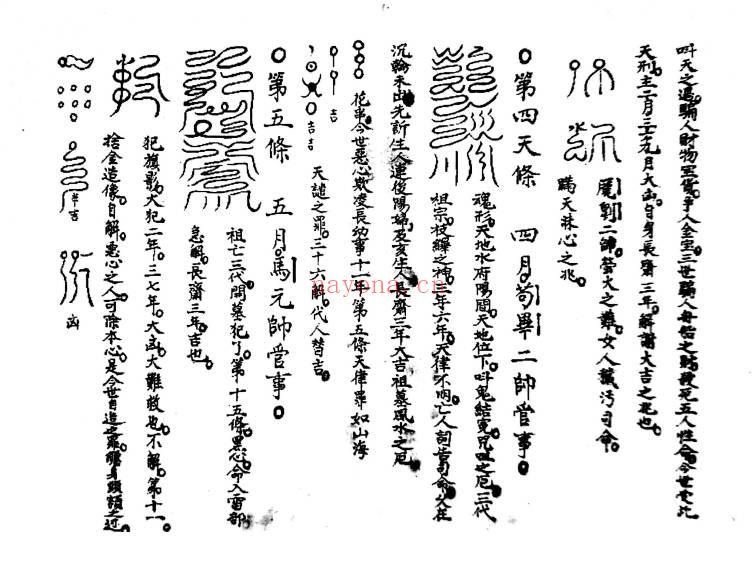 叫天之過騙人財物黑貨爭人金宝三世騙人母
五人性命今世受此
天刑主二月三七九月大凶自身長齋三年解謝大吉之兆也
厲對二帥管火之難女人穢污司命
瞞天昧心之兆
第四天條 四月苟畢二帥管事
魂形天地水府陽間天地位下叫鬼結冤咒咀之厄三代
祖宗枝繹之神三年六年天律不內亡人詞告司命久在
沉輪未出先訴生人連復陽及亥生人長齋三年大吉祖墓風水之厄
花串今世惡心欺凌長幼事十一年第五條天律罪如山海
吉
天譴之罪三十六解代人替吉
吉吉
第五條 五月馬元帥管事
祖亡三代間墓犯了第十五條黑心命入雷部
急解長齋三年吉也
犯複影大犯二年三七年大凶大難救也不解第十一
捨金造像自解惡心之人可除本心是今世自造之罪身頭額之
半吉
凶
nayona.cn